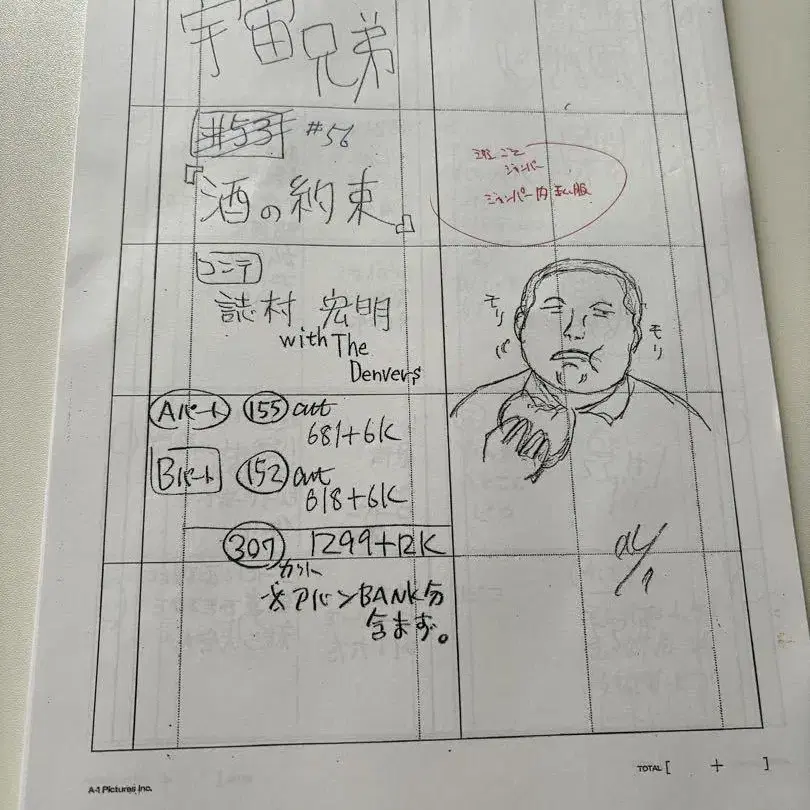 宇宙兄弟
#53 #56
酒の約束
コンテ
誌村 宏明
with The
Denvers
Aパート 155 cut
681+6K
Bパート 152 cut
618+6K
307 1299+12K
カット
※アバンBANK分
含ます。
ジャンパー
ジャンパー内 私服
モリ
モリ
TOTAL [ + ]
A-1 Pictures Inc.